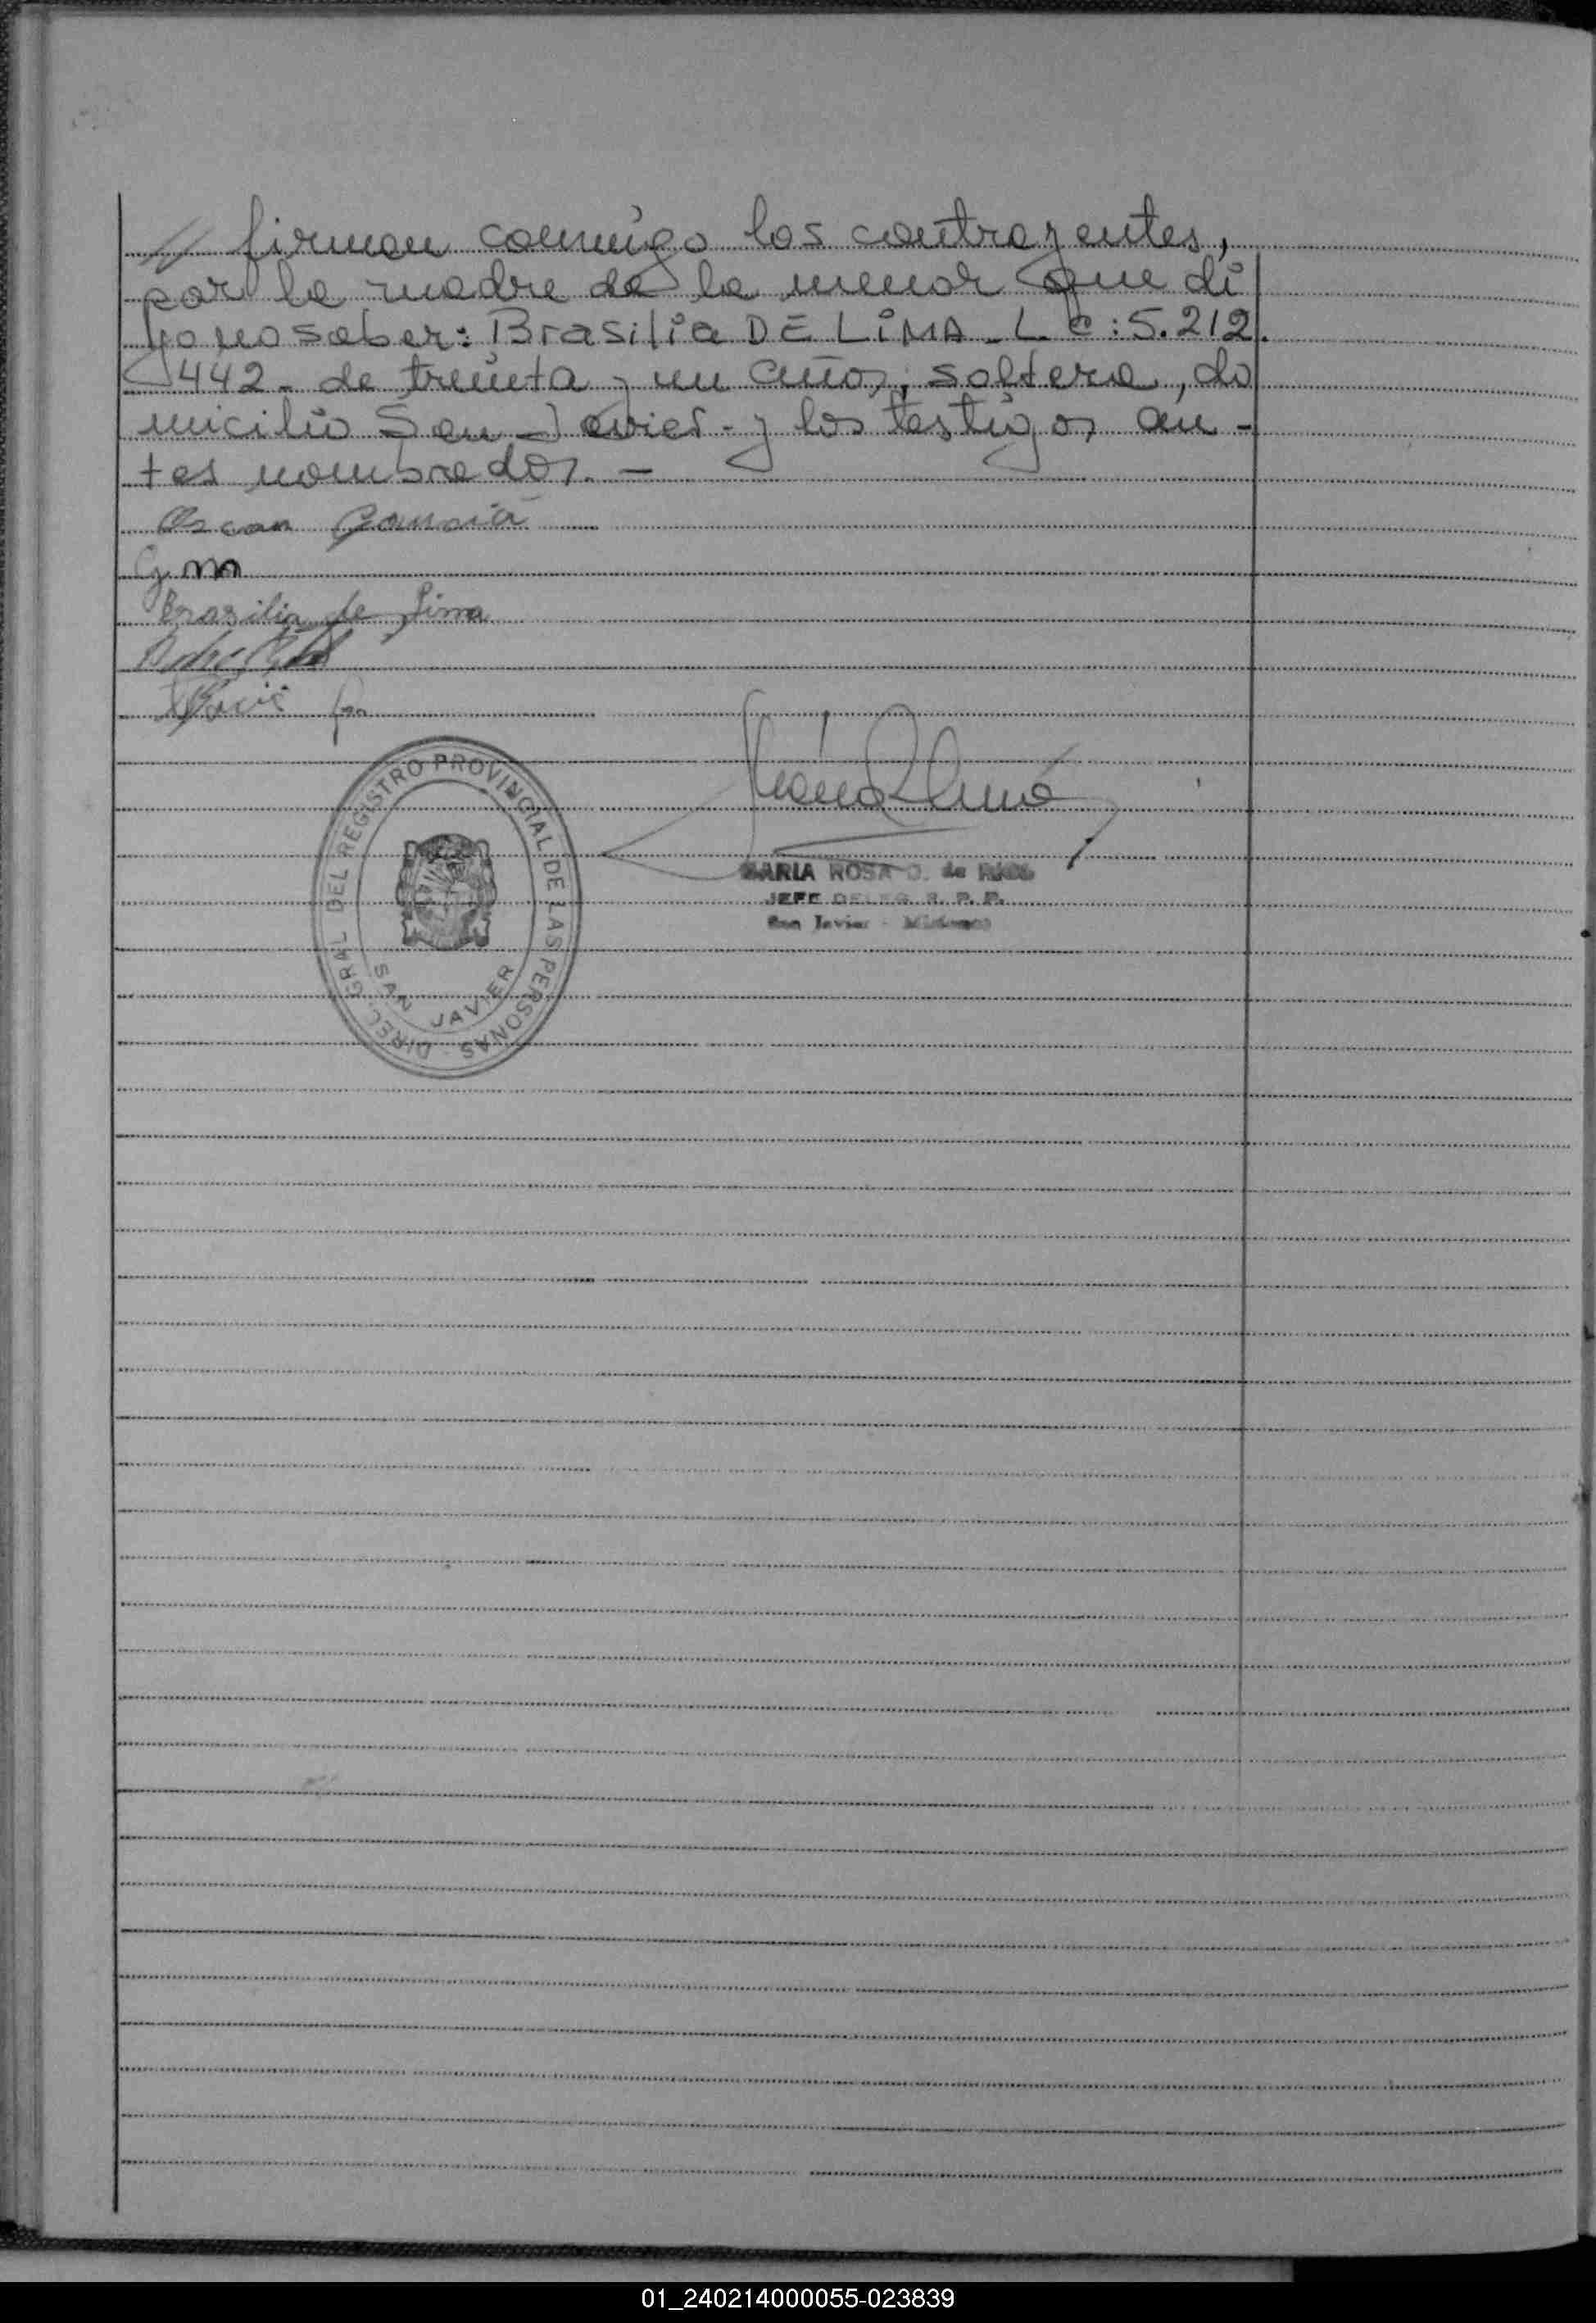 // firman conmigo los contrayentes,
por la madre de la menor que di
jo no saber: Brasilia DE LIMA - L C: 5.212.
442 - de treinta y un años, soltera, do
micilio San Javier - y los testigos an -
tes nombrados. -
Oscar
G m
Brasilia de Lima
MARIA ROSA de
JEFE DELEG. R. P. P.
San Javier - Misiones
DIREC. GRAL. DEL REGISTRO PROVINCIAL DE LAS PERSONAS -
SAN JAVIER
01_240214000055-023839